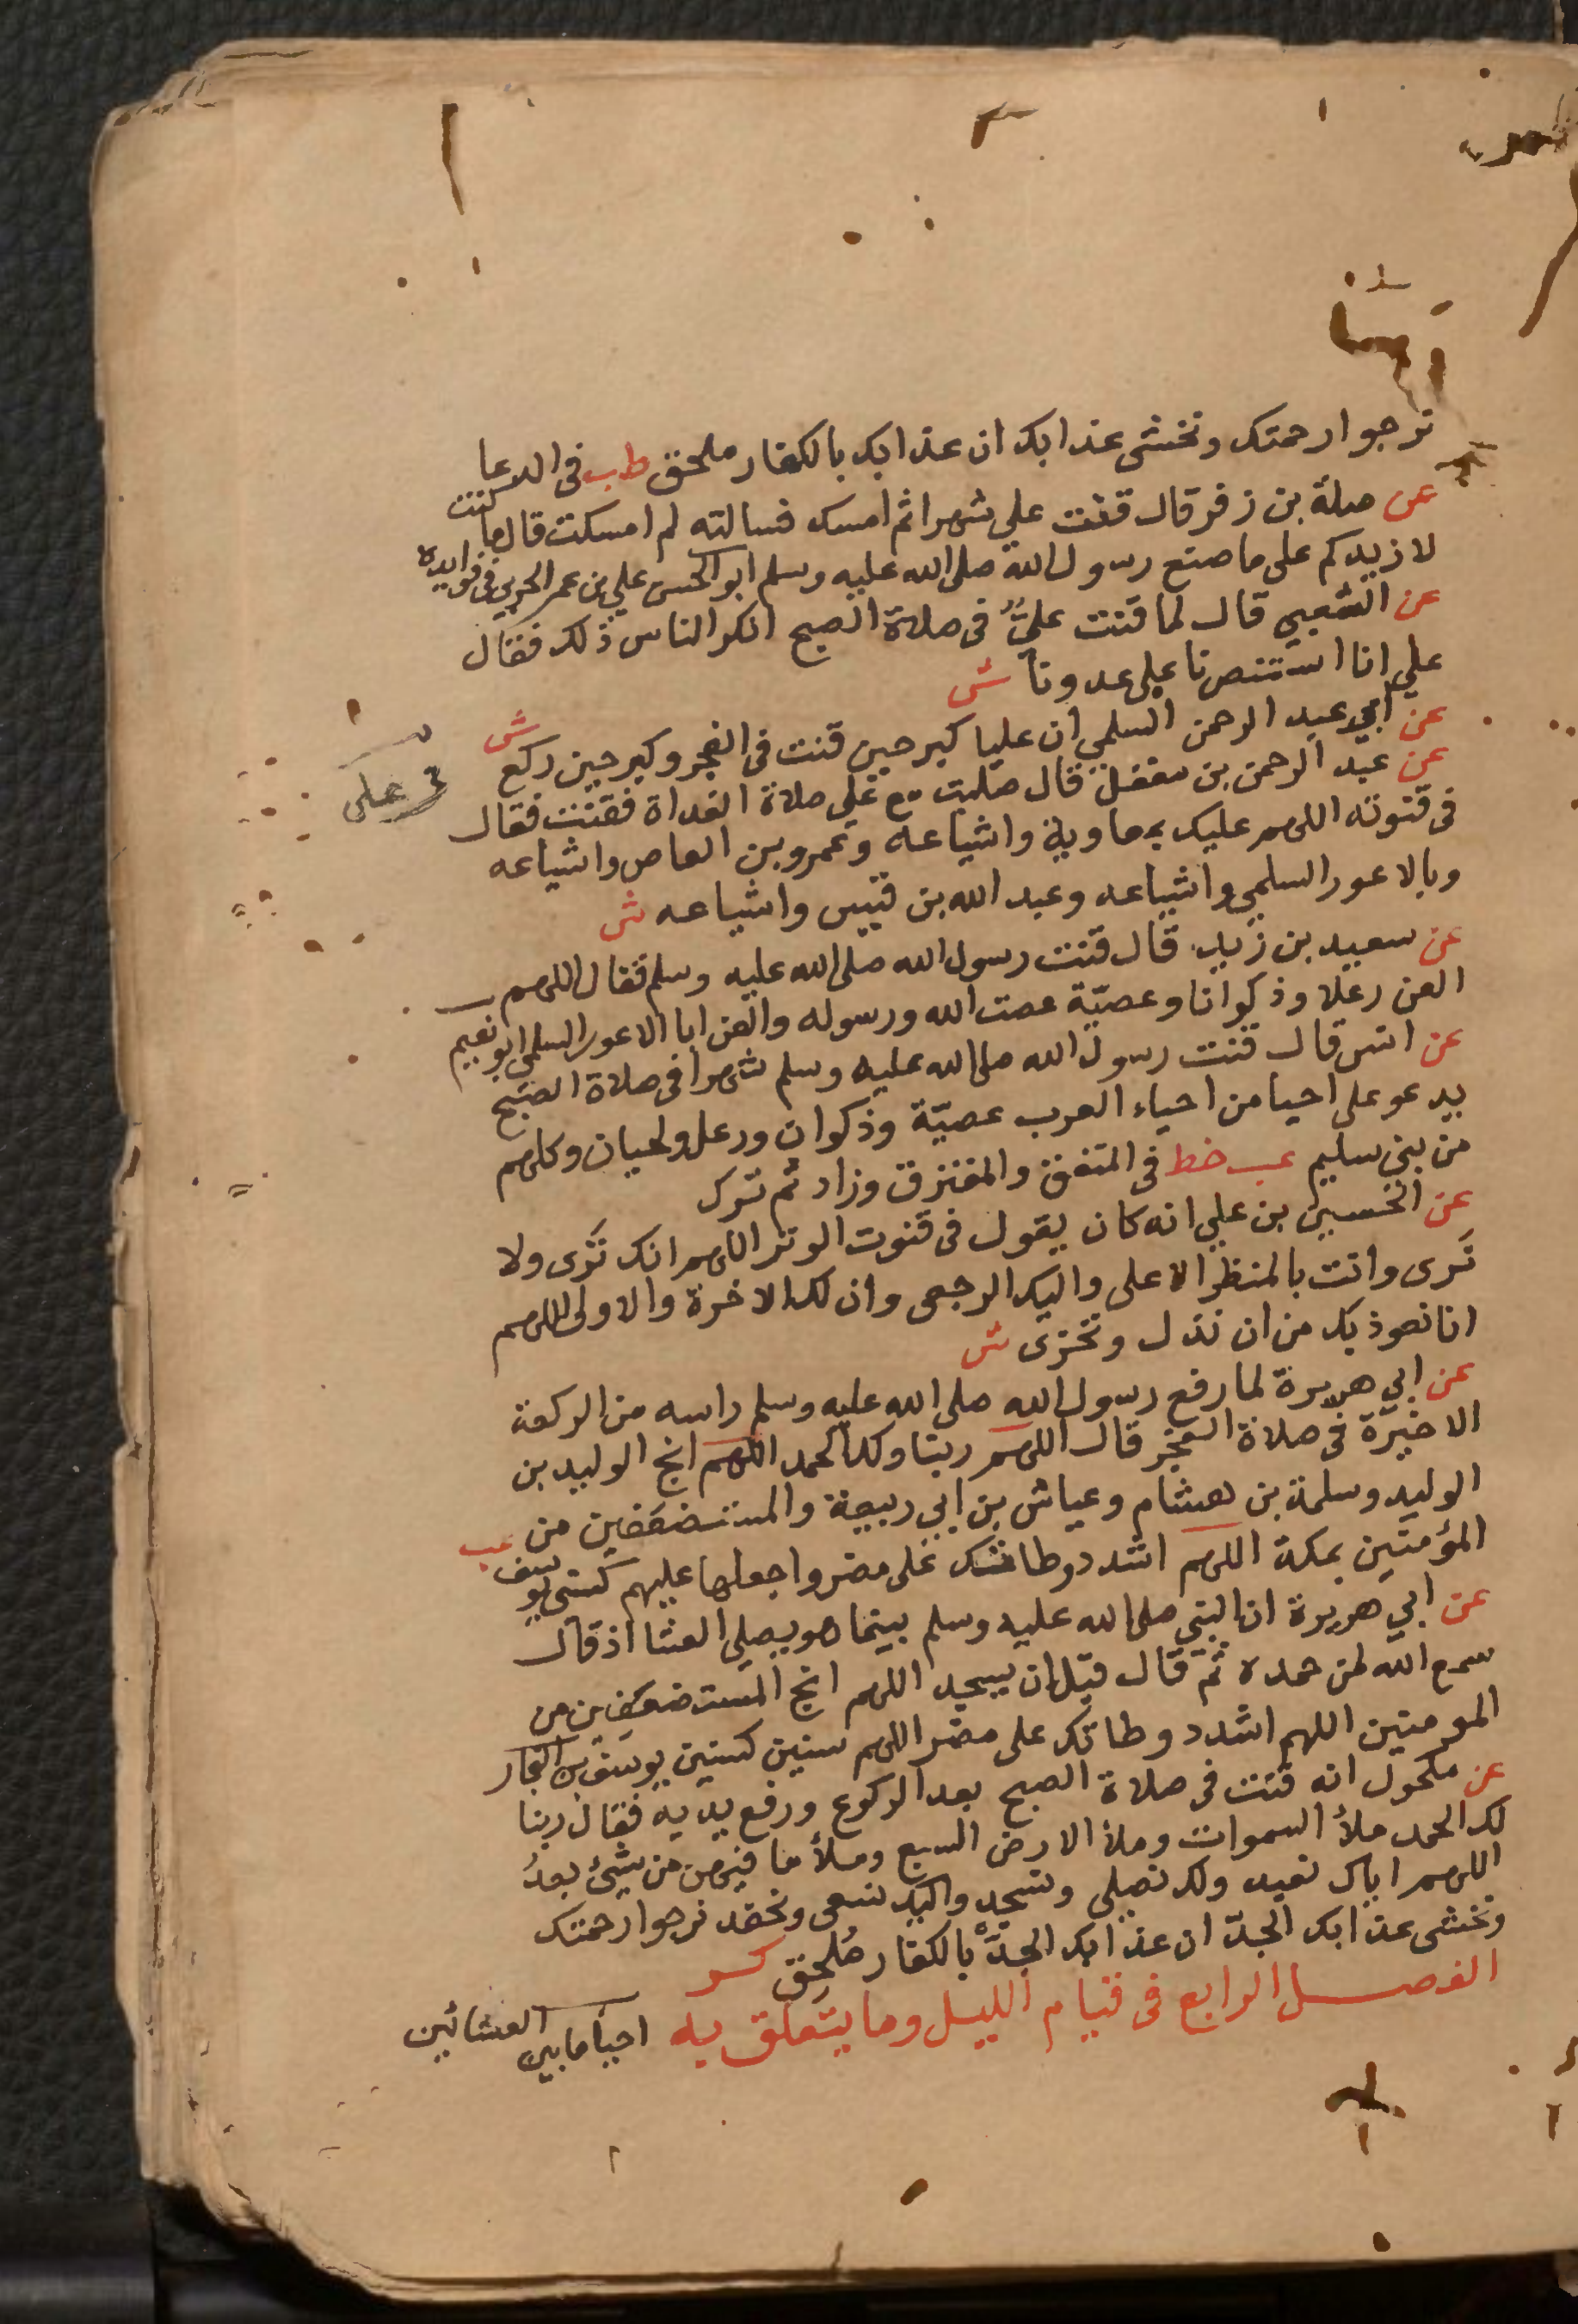 نرجوا رحمتك ونخشى عذابك ان عذابك بالكفار ملحق طب في الدعا
عن صلة بن زفر قال قنت علي شهرا ثم امسك فسالته لم امسكت قال ما كنت
لازيدكم على ما صنع رسول الله صلى الله عليه وسلم ابو الحسن علي بن عمر الحربي في فوايده
عن الشعبي قال لما قنت عليٌّ في صلاة الصبح انكر الناس ذلك فقال
علي انا استنصرنا على عدونا ش
عن أبي عبد الرحمن السلمي ان عليا كبر حين قنت في الفجر وكبر حين ركع ش
عن عبد الرحمن بن معقل قال صليت مع علي صلاة الغداة فقنت فقال
على
في قنوته اللهم عليك بمعاوية واشياعه وعمرو بن العاص واشياعه
وبالاعور السلمي واشياعه وعبد الله بن قيس واشياعه ش
عن سعيد بن زيد قال قنت رسول الله صلى الله عليه وسلم فقال اللهم
العن رعلا وذكوانا وعصيّة عصت الله ورسوله والعن ابا الاعور السلمي ابو نعيم
عن انس قال قنت رسول الله صلى الله عليه وسلم شهرا في صلاة الصبح
يدعو على احيا من احياء العرب عصيّة وذكوان ورعل ولحيان وكلهم
من بني سليم عب خط في المتفق والمفترق وزاد ثم ترك
عن الحسين بن علي انه كان يقول في قنوت الوتر اللهم انك تَرى ولا
تُرى وانت بالمنظر الاعلى واليك الرجعى وان لك الاخرة والاولى اللهم
انا نعوذ بك من ان نذل ونخزى ش
عن ابي هريرة لما رفع رسول الله صلى الله عليه وسلم راسه من الركعة
الاخيرة في صلاة الفجر قال اللهم ربنا ولك الحمد اللهم انج الوليد بن
الوليد وسلمة بن هشام وعياش بن ابي ربيعة والمستضعفين من
المؤمنين بمكة اللهم اشدد وطاتك على مضر واجعلها عليهم كسني يوسف عب
عن ابي هريرة ان النبي صلى الله عليه وسلم بينما هو يصلي العشا اذ قال
سمع الله لمن حمده ثم قال قبل ان يسجد اللهم انج المستضعفين من
المومنين اللهم اشدد وطاتك على مضر اللهم سنين كسنين يوسف ابن النجار
عن مكحول انه قنت في صلاة الصبح بعد الركوع ورفع يديه فقال ربنا
لك الحمد ملأ السموات وملأ الارض السبع وملأ ما فيهن من شيئ بعدُ
اللهم اياك نعبد ولك نصلي ونسجد واليك نسعى ونحفد نرجوا رحمتك
ونخشى عذابك الجدّ ان عذابك الجدّ بالكفار مُلحِق كر
الفصل الرابع في قيام الليل وما يتعلق به احيأ ما بين العشائين